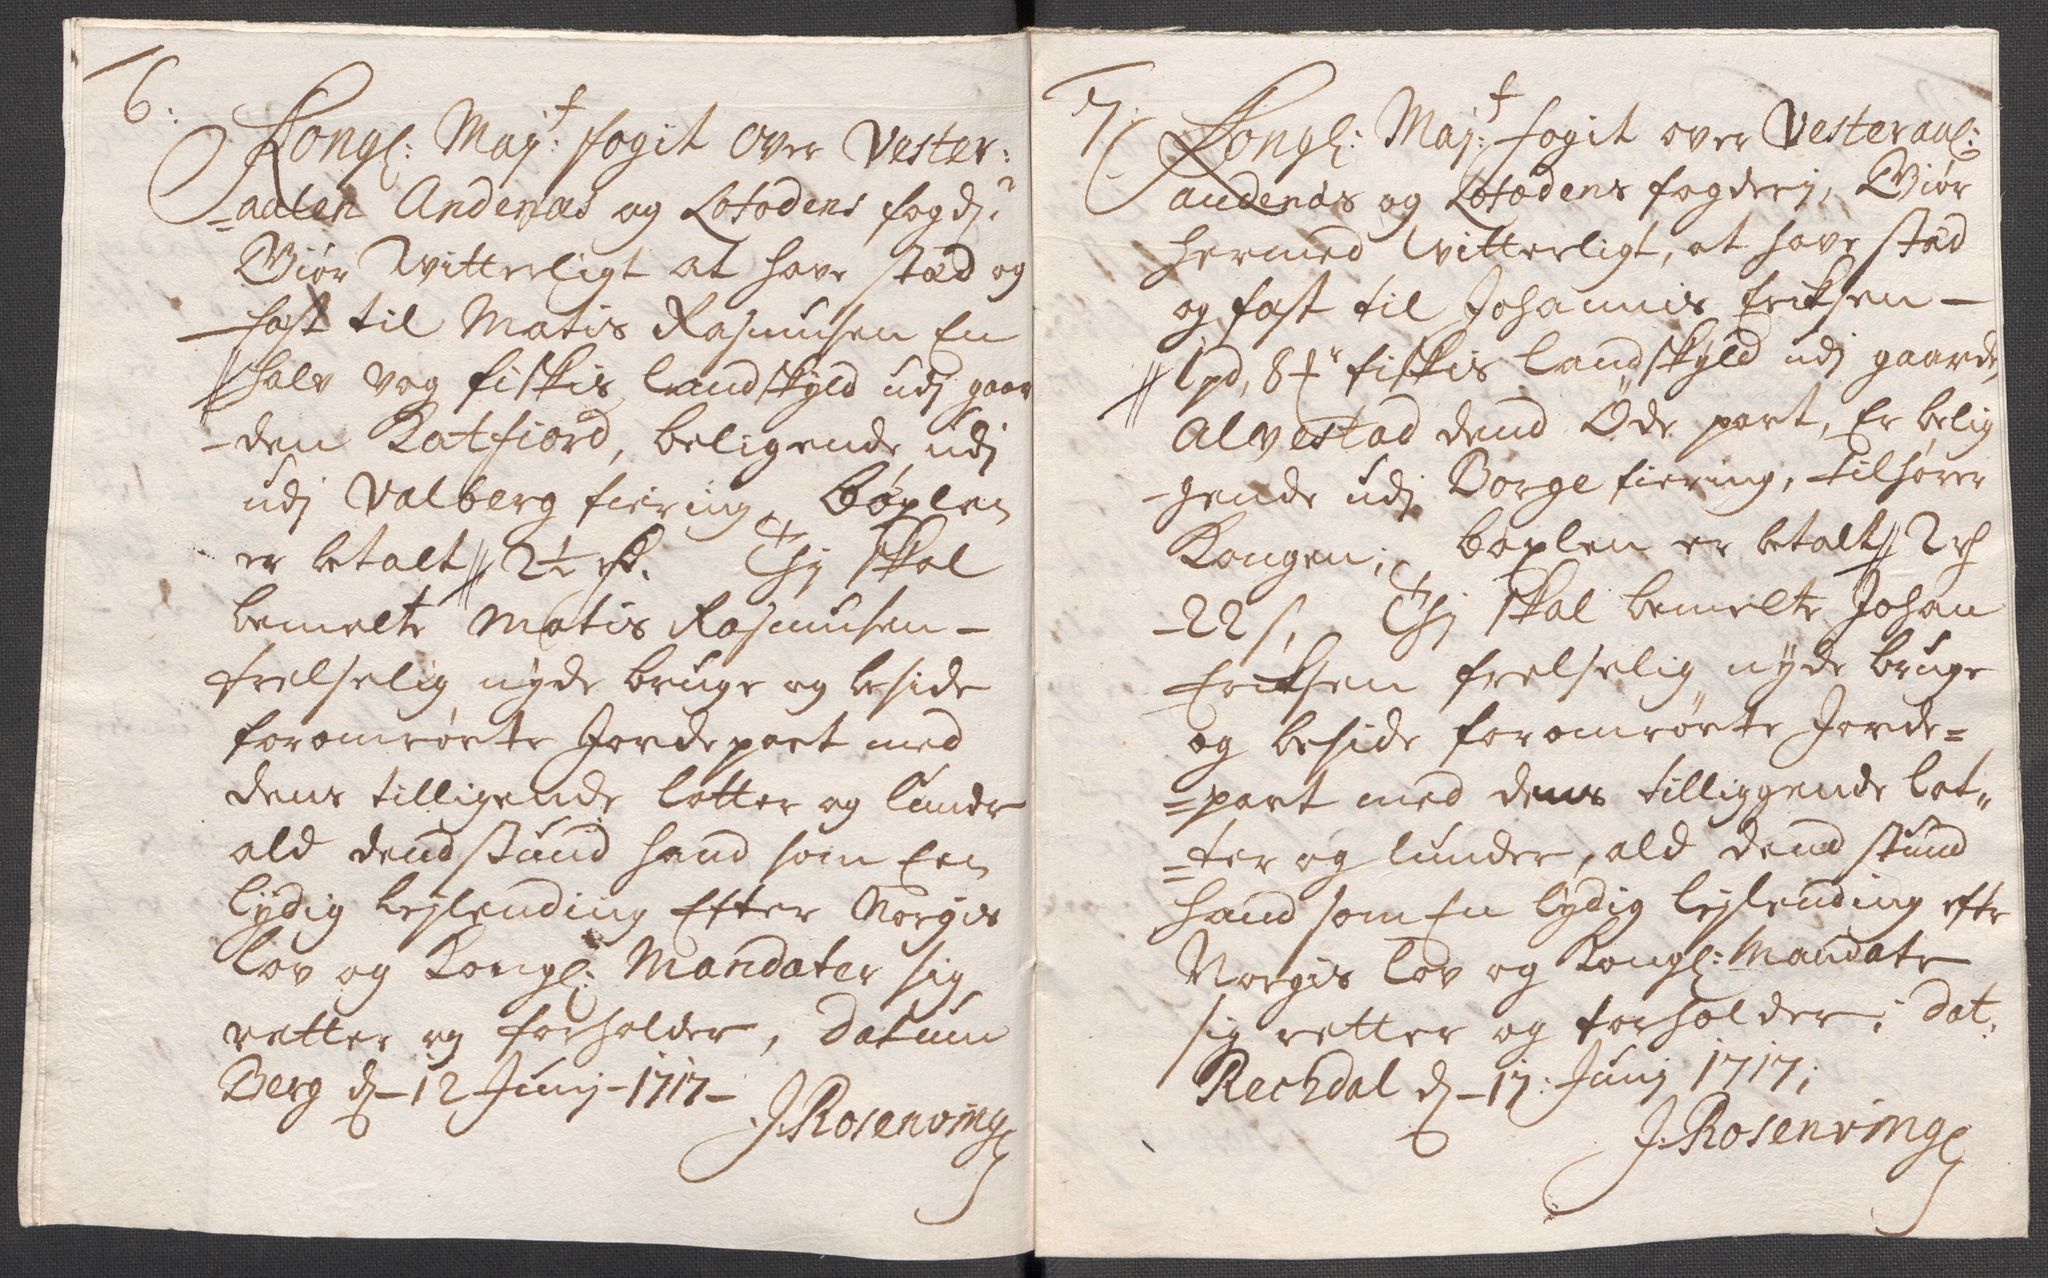 6:
Kongl: Maÿ:t fogit over Vester:
=aalen Andenæs og Lofodens fogd:
Giør Witterligt at have stæd og
fæst til Matis Rasmusen En
halv vog fiskis landskÿld udj gaar
-den Katfiord, beligende udj
udj Valberg fiering, bøxlen
er betalt // 2½ rd. Thj skal
bemelte Matis Rasmusen
frelselig nÿde bruge og beside
foromrørte Jordepart med
dens tilligende lotter og lunder
ald dend stund hand som Een
lÿdig leÿlending Efter Norgis
lov og Kongl: Mandater sig
retter og forholder, Datum
Berg d. 12 Junj 1717
J. Rosenving
7:
Kongl: Maj:t fogit over Vesteraal:
andenæs og Lofodens fogderj, Giør
hermed Witterligt, at have stæd
og fæst til Johannis Eriksen
// 1 pd, 8 fiskis landskÿld udj gaarde
Alvestad dend Øde part, Er belig
-gende udj Borge fiering, tilhører
Kongen; bøxlen er betalt // 2 rd
22 s, Thj skal bemelte Johan
Eriksen frelselig nÿde bruge
og beside foromrørte Jorde=
=part med dens tilliggende lot,,
=ter og lunder, ald dend stund
hand som En lÿdig leÿlending efter
Norgis lov og Kongl: Mandate
sig retter og forholder; Dat.
Rechdal d. 17: Junj 1717;
J. Rosenving